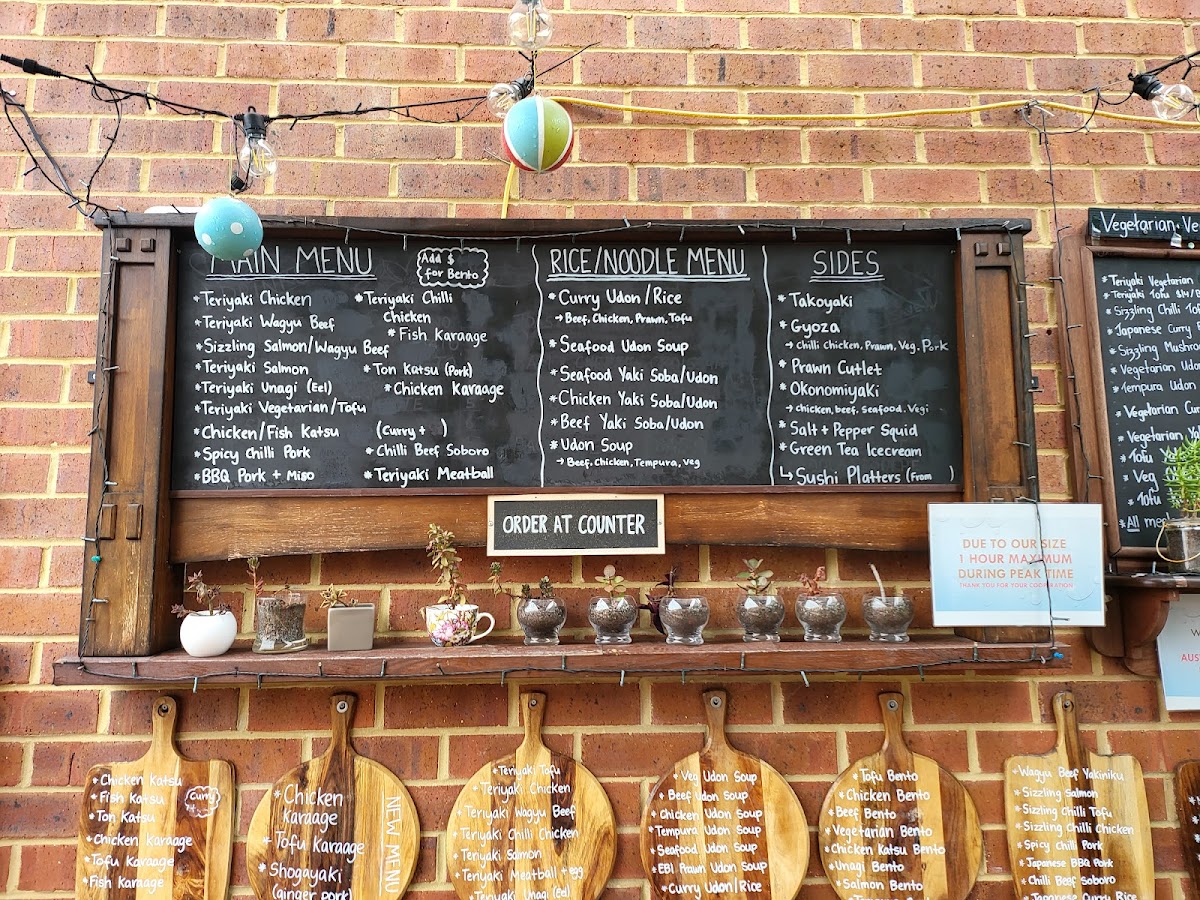 MAIN MENU
Add $
for Bento
*Teriyaki Chicken
*Teriyaki Wagyu Beef
*Sizzling Salmon/Wagyu Beef
*Teriyaki Salmon
*Teriyaki Unagi (Eel)
*Teriyaki Vegetarian/Tofu
*Chicken/Fish Katsu (Curry + )
*Spicy Chilli Pork
*BBQ Pork + Miso
*Teriyaki Chilli
Chicken
*Fish Karaage
*Ton Katsu (Pork)
*Chicken Karaage
*Chilli Beef Soboro
*Teriyaki Meatball
RICE/NOODLE MENU
*Curry Udon/Rice
→Beef, Chicken, Prawn, Tofu
*Seafood Udon Soup
*Seafood Yaki Soba/Udon
*Chicken Yaki Soba/Udon
*Beef Yaki Soba/Udon
*Udon Soup
→Beef, Chicken, Tempura, Veg
SIDES
*Takoyaki
*Gyoza
→Chilli Chicken, Prawn, Veg, Pork
*Prawn Cutlet
*Okonomiyaki
→chicken, beef, Seafood, Vegi
*Salt + Pepper Squid
*Green Tea Icecream
↳Sushi Platters (From )
Vegetarian
*Teriyaki Vegetarian
*Teriyaki Tofu
*Sizzling Chilli
*Japanese Curry
*Sizzling
*Vegetarian
*Tempura Udon
*Vegetarian
*Vegetarian
*Tofu
*Veg
*Tofu
*All
ORDER AT COUNTER
DUE TO OUR SIZE
1 HOUR MAXIMUM
DURING PEAK TIME
THANK YOU FOR YOUR COOPERATION
*Chicken Katsu
*Fish Katsu
*Ton Katsu
Curry
*Chicken Karaage
*Tofu Karaage
*Fish Karaage
*Chicken
Karaage
*Tofu Karaage
*Shogayaki
(ginger pork)
NEW MENU
*Teriyaki Tofu
*Teriyaki Chicken
*Teriyaki Wagyu Beef
*Teriyaki Chilli Chicken
*Teriyaki Salmon
*Teriyaki Meatball + egg
*Teriyaki Unagi (Eel)
*Veg Udon Soup
*Beef Udon Soup
*Chicken Udon Soup
*Tempura Udon Soup
*Seafood Udon Soup
*EBI Prawn Udon Soup
*Curry Udon/Rice
*Tofu Bento
*Chicken Bento
*Beef Bento
*Vegetarian Bento
*Chicken Katsu Bento
*Unagi Bento
*Salmon Bento
*Wagyu Beef Yakiniku
*Sizzling Salmon
*Sizzling Chilli Tofu
*Sizzling Chilli Chicken
*Spicy Chilli Pork
*Japanese BBQ Pork
*Chilli Beef Soboro
*Japanese Curry Rice